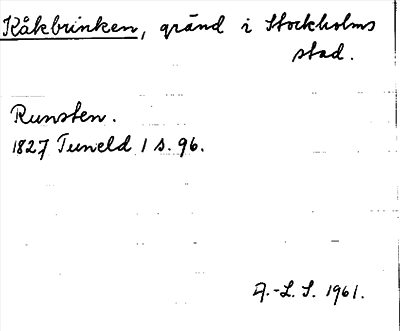 Kåkbrinken, gränd i Stockholms
stad.
Runsten.
1827 Tuneld 1 s. 96.
A.-L. S. 1961.